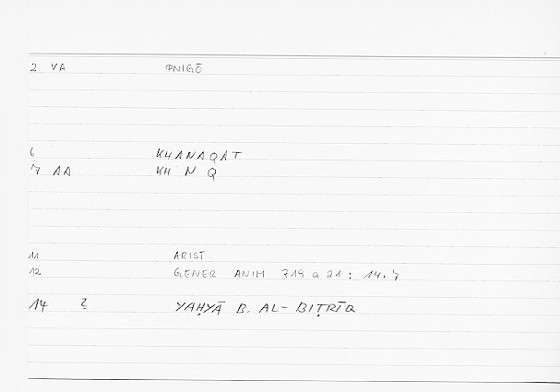 2 VA ΠNIGĒ
6 KHANAQAT
7 AA KH N Q
11 ARIST
12 GENER ANIM 719 a 21 : 14.7
14 YAḤYĀ B. AL-BIṬRĪQ